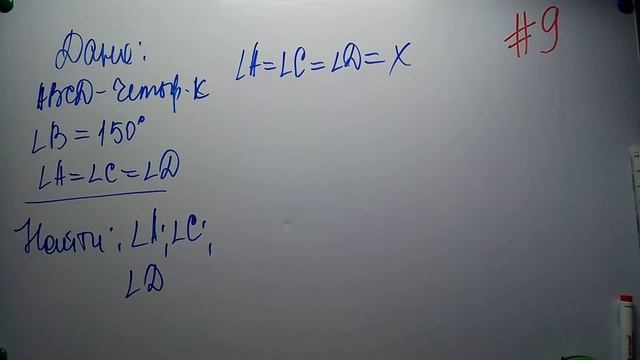 #9
Дано:
ABCD - Четыр-к
∠B = 150°
∠A = ∠C = ∠D
Найти: ∠A; ∠C;
∠D
∠A = ∠C = ∠D = x